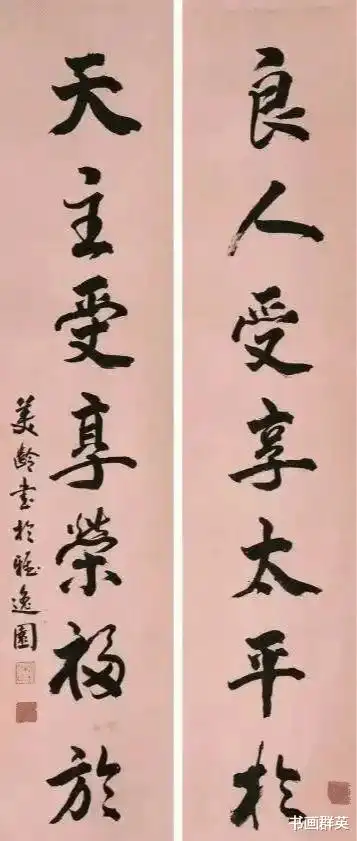 良人受享太平於
天主受享榮福於
美齡書於雅逸園
书画群英